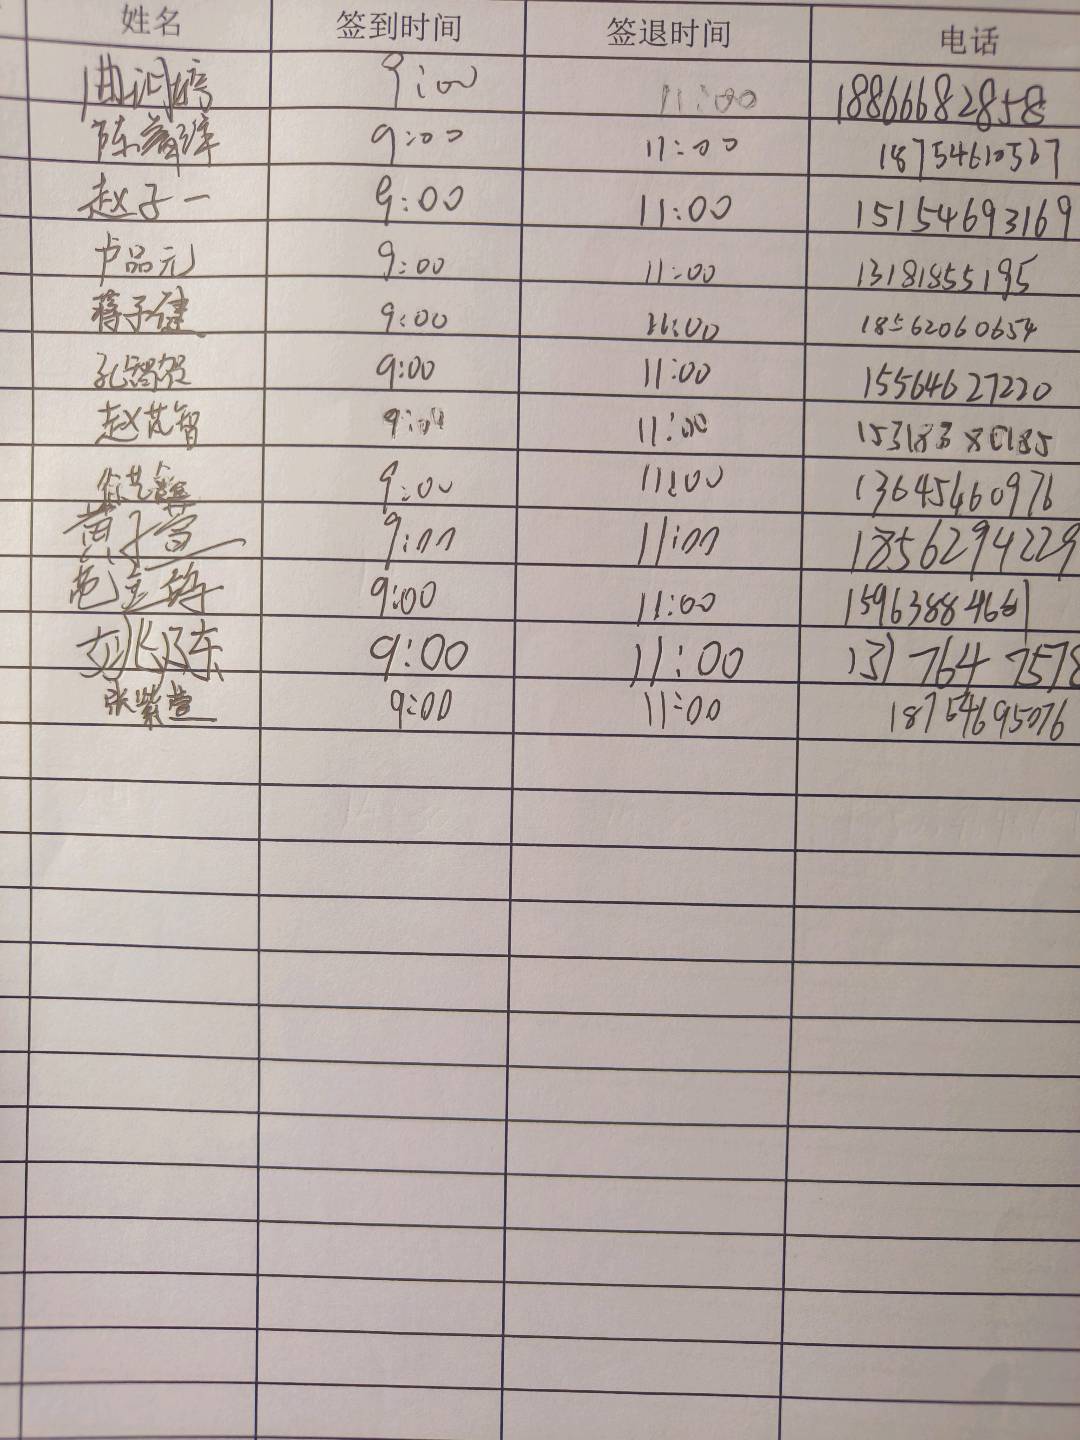 姓名 签到时间 签退时间 电话
曲 9:00 11:00 18866682858
陈 9:00 11:00 18754610567
赵子一 9:00 11:00 15154693169
卢品元 9:00 11:00 13181855195
蒋子健 9:00 11:00 18562060654
孔 9:00 11:00 15564627220
赵艺智 9:00 11:00
徐艺 9:00 11:00 13645460976
黄子萱 9:00 11:00 18562942229
9:00 11:00
刘 东 9:00 11:00 1317647578
张紫萱 9:00 11:00 18754695076